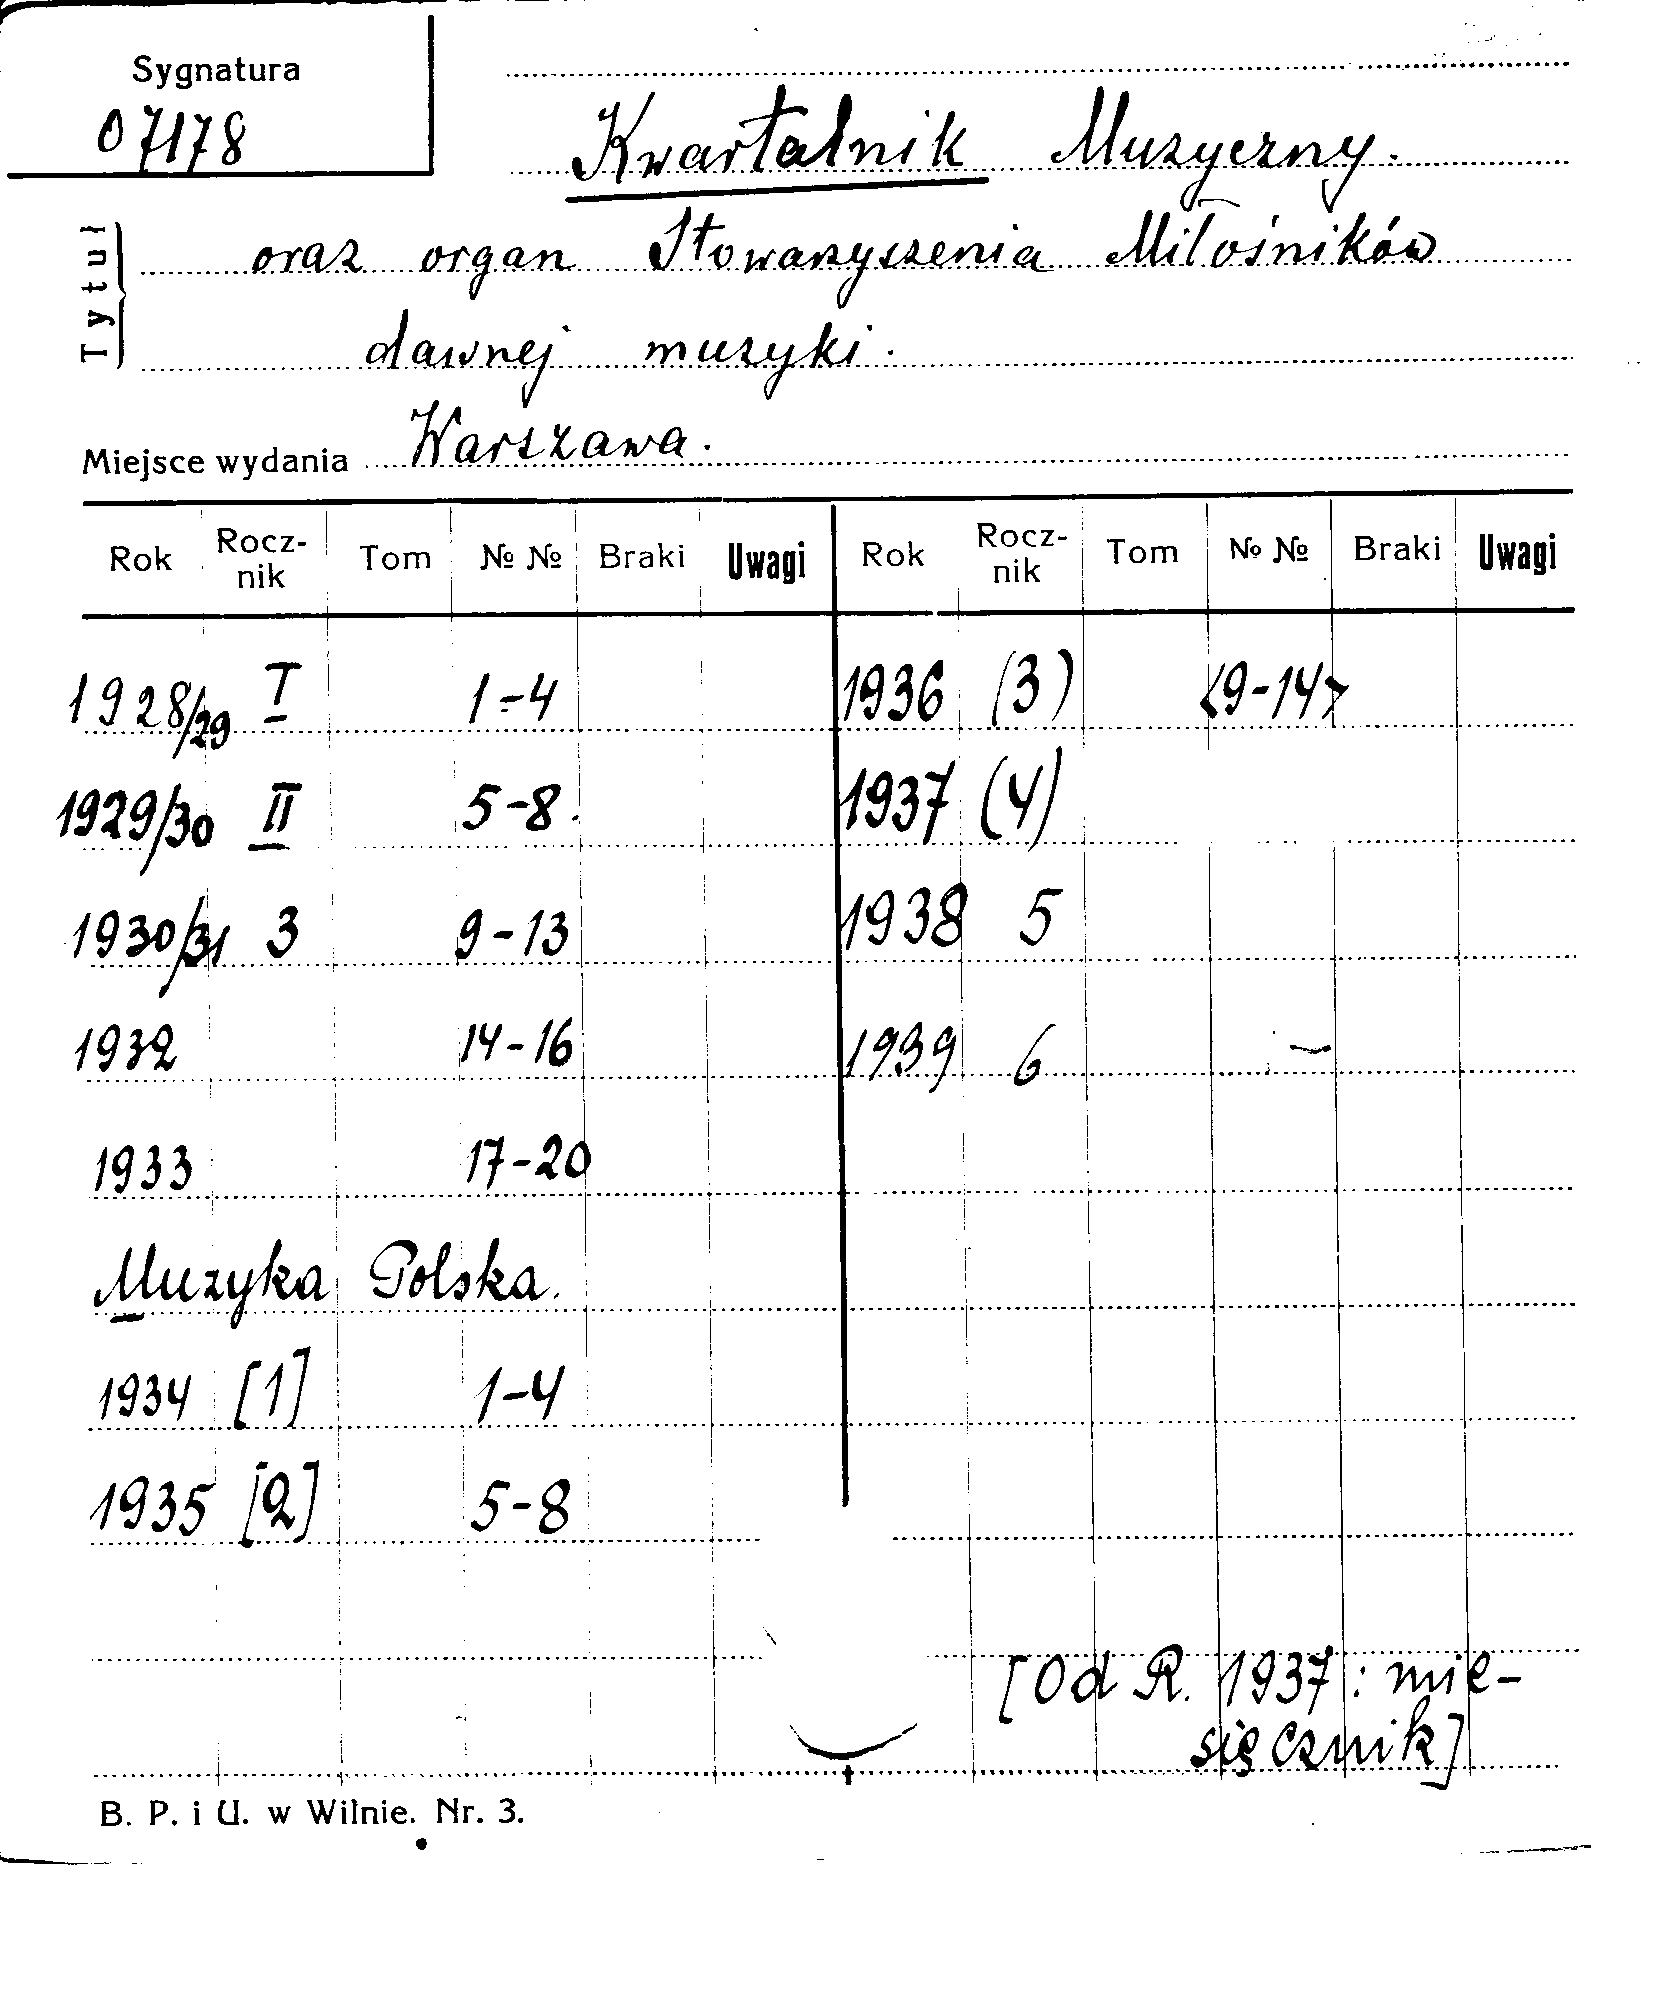 Sygnatura
07178
Kwartalnik Muzyczny.
Tytuł
oraz organ Stowarzyszenia Miłośników
dawnej muzyki.
Miejsce wydania Warszawa.
Rok Rocz-nik Tom № № Braki Uwagi Rok Rocz-nik Tom № № Braki Uwagi
1928/29 I 1-4 1936 (3) <9-14>
1929/30 II 5-8. 1937 (4)
1930/31 3 9-13 1938 5
1932 14-16 1939 6 -
1933 17-20
Muzyka Polska.
1934 [1] 1-4
1935 [2] 5-8
[Od R. 1937: mie-
sięcznik]
B. P. i U. w Wilnie. Nr. 3.